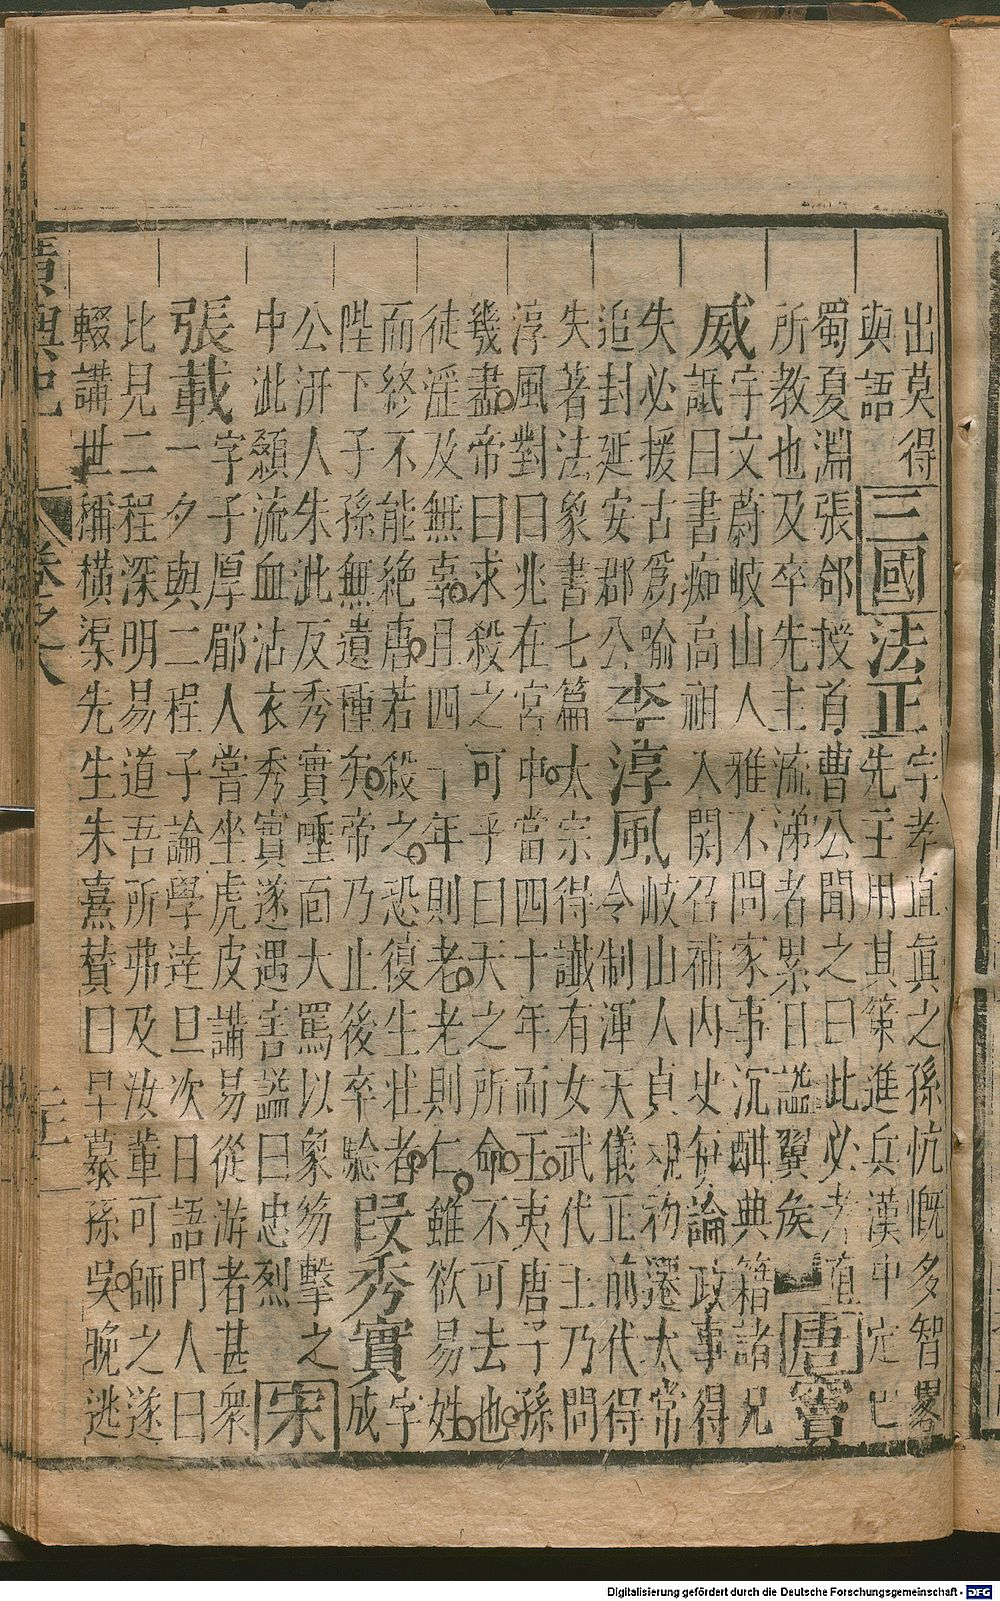 出莫得
與語
三國
法正
字孝直真之孫忼慨多智畧
先主用其策進兵漢中定巴
蜀夏淵張郃授首曹公聞之曰此必孝直
所教也及卒先主流涕者累日謚翼侯
唐
竇
威
字文蔚岐山人雅不問家事沉酣典籍諸兄
詆曰書痴高祖入関召補內史每論政事得
失必援古爲喻
追封延安郡公
李淳風
岐山人貞觀初遷太常
令制渾天儀正前代得
失著法象書七篇太宗得讖有女武代王乃問
淳風對曰兆在宮中當四十年而王夷唐子孫
幾盡帝曰求殺之可乎曰天之所命不可去也
徒淫及無辜且四十年則老老則仁雖欲易姓
而終不能絶唐若殺之恐復生壯者
陛下子孫無遺種矣帝乃止後卒驗
段秀實
字
成
公汧人朱泚反秀實唾面大罵以象笏擊之
中泚顙流血沾衣秀實遂遇害謚曰忠烈
宋
張載
字子厚郿人嘗坐虎皮講易從游者甚衆
一夕與二程子論學達旦次日語門人曰
比見二程深明易道吾所弗及汝輩可師之遂
輟講世稱橫渠先生朱熹贊曰早慕孫吳晚逃
廣輿記
Digitalisierung gefördert durch die Deutsche Forschungsgemeinschaft - DFG